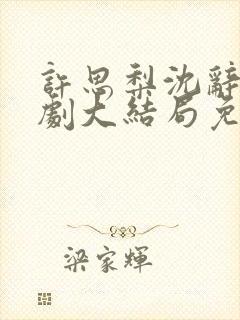 許思梨沈辭
劇大結局免
梁家輝